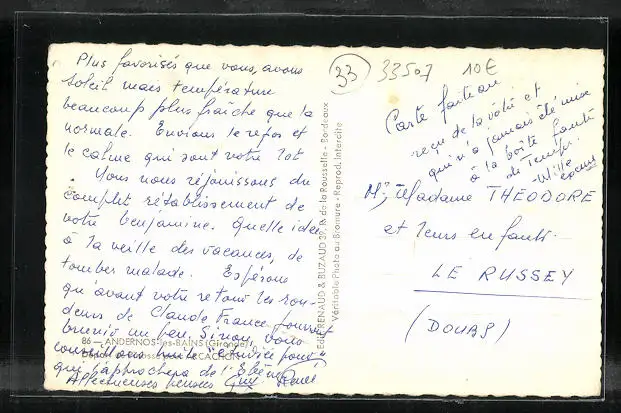 Plus favorisés que vous, avons
soleil mais température
beaucoup plus fraîche que la
normale. Envions le repos et
le calme qui sont votre lot
Vous nous réjouissons du
complet rétablissement de
votre benjamine. Quelle idée
à la veille des vacances, de
tomber malade. Espérons
qu'avant votre retour les ron-
deurs de Claude France pourront
un peu. Sinon, vous
conseillons
qui l'approchera de l'
Affectueuses pensées
86 — ANDERNOS-les-BAINS (Gironde)
Edit. RENAUD & BUZAUD 39, R. de la Rousselle - Bordeaux
Véritable Photo au Bromure - Reprod. Interdite
33
33507
10€
Carte
reçu de la vôtre et
qui n'a jamais été mise
à la boîte faute
de temps.
Mr, Madame THEODORE
et leurs enfants.
LE RUSSEY
(DOUBS)